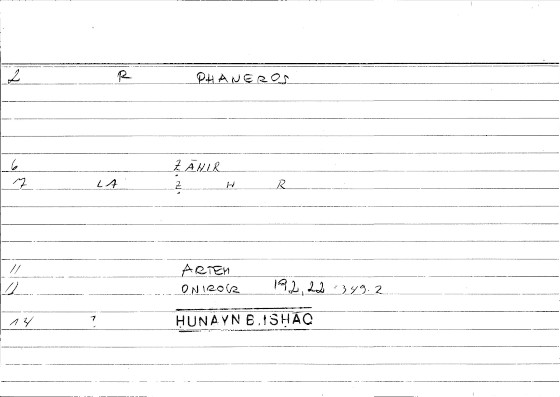 2 R PHANEROS
6 ẒĀHIR
7 LA Ẓ H R
11 ARTEM
11 ONIROCR 192,22 - 349.2
14 ? HUNAYN B. ISḤĀQ